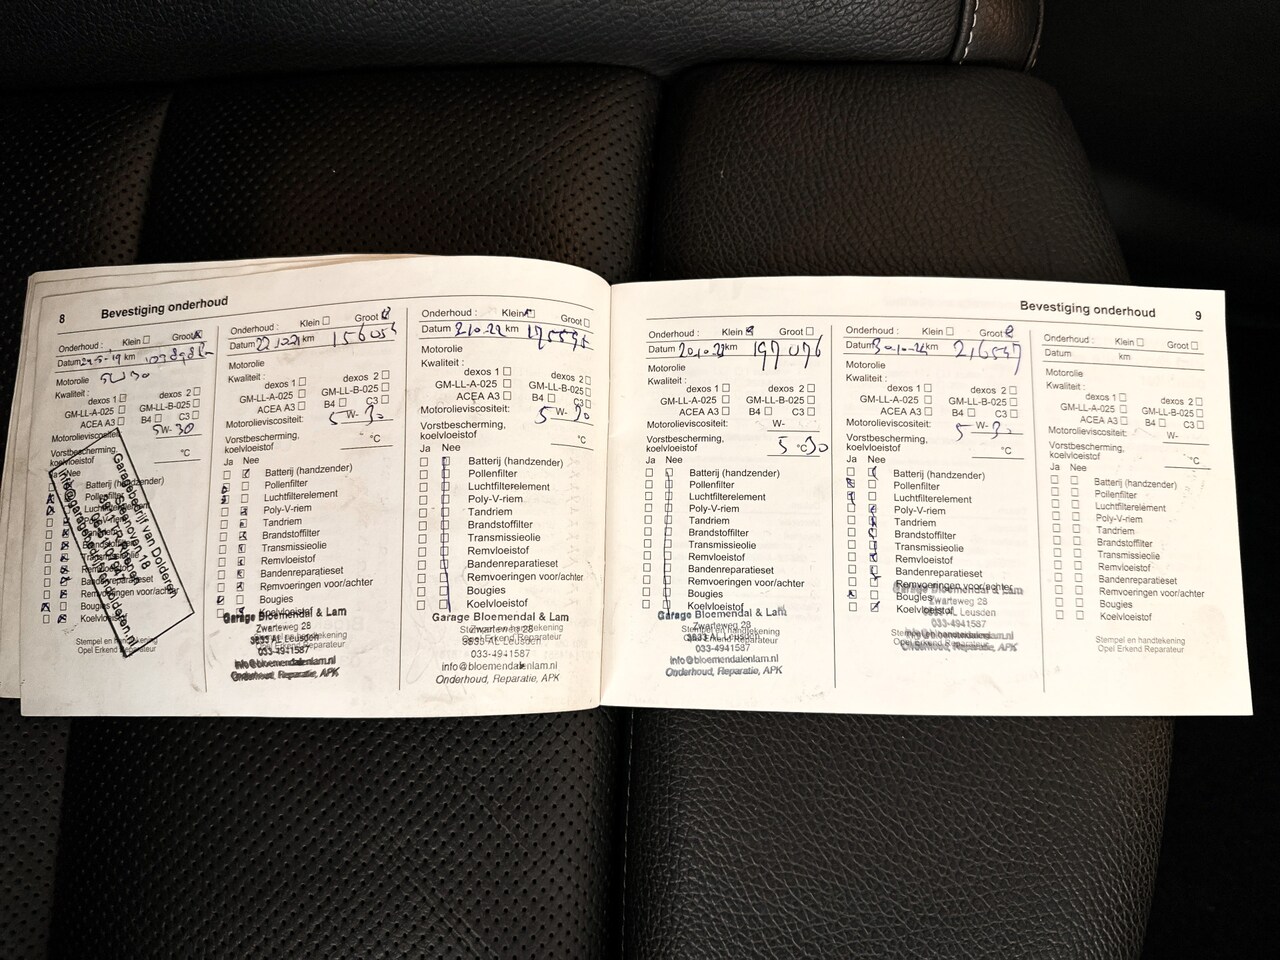 8 Bevestiging onderhoud
Onderhoud : Klein Groot
Datum km
Motorolie 5W30
Kwaliteit :
dexos 1 dexos 2
GM-LL-A-025 GM-LL-B-025
ACEA A3 B4 C3
Motorolieviscositeit: 5W-30
Vorstbescherming, koelvloeistof °C
Ja Nee
Pollenfilter
Bandenreparatieset
Remvoeringen voor/achter
Bougies
Garagebedrijf van Dolderen
Stempel en handtekening
Opel Erkend Reparateur
Onderhoud : Klein Groot
Datum km 156053
Motorolie
Kwaliteit :
dexos 1 dexos 2
GM-LL-A-025 GM-LL-B-025
ACEA A3 B4 C3
Motorolieviscositeit: 5W-30
Vorstbescherming,
koelvloeistof °C
Ja Nee
Batterij (handzender)
Pollenfilter
Luchtfilterelement
Poly-V-riem
Tandriem
Brandstoffilter
Transmissieolie
Remvloeistof
Bandenreparatieset
Remvoeringen voor/achter
Bougies
Koelvloeistof
Garage Bloemendal & Lam
Zwarteweg 28
3833 AL Leusden
033-4941587
info@bloemendalenlam.nl
Onderhoud, Reparatie, APK
Onderhoud : Klein Groot
Datum km
Motorolie
Kwaliteit :
dexos 1 dexos 2
GM-LL-A-025 GM-LL-B-025
ACEA A3 B4 C3
Motorolieviscositeit: 5W-30
Vorstbescherming,
koelvloeistof °C
Ja Nee
Batterij (handzender)
Pollenfilter
Luchtfilterelement
Poly-V-riem
Tandriem
Brandstoffilter
Transmissieolie
Remvloeistof
Bandenreparatieset
Remvoeringen voor/achter
Bougies
Koelvloeistof
Garage Bloemendal & Lam
Zwarteweg 28
3833 AL Leusden
033-4941587
info@bloemendalenlam.nl
Onderhoud, Reparatie, APK
Bevestiging onderhoud 9
Onderhoud : Klein Groot
Datum km 197076
Motorolie
Kwaliteit :
dexos 1 dexos 2
GM-LL-A-025 GM-LL-B-025
ACEA A3 B4 C3
Motorolieviscositeit: W-
Vorstbescherming,
koelvloeistof 5 °C 30
Ja Nee
Batterij (handzender)
Pollenfilter
Luchtfilterelement
Poly-V-riem
Tandriem
Brandstoffilter
Transmissieolie
Remvloeistof
Bandenreparatieset
Remvoeringen voor/achter
Bougies
Koelvloeistof
Garage Bloemendal & Lam
Zwarteweg 28
3833 AL Leusden
033-4941587
info@bloemendalenlam.nl
Onderhoud, Reparatie, APK
Onderhoud : Klein Groot
Datum km
Motorolie
Kwaliteit :
dexos 1 dexos 2
GM-LL-A-025 GM-LL-B-025
ACEA A3 B4 C3
Motorolieviscositeit: 5W-30
Vorstbescherming,
koelvloeistof °C
Ja Nee
Batterij (handzender)
Pollenfilter
Luchtfilterelement
Poly-V-riem
Tandriem
Brandstoffilter
Transmissieolie
Remvloeistof
Bandenreparatieset
Remvoeringen voor/achter
Bougies
Koelvloeistof
Garage Bloemendal & Lam
Zwarteweg 28
3833 AL Leusden
033-4941587
Onderhoud, Reparatie, APK
Onderhoud : Klein Groot
Datum km
Motorolie
Kwaliteit :
dexos 1 dexos 2
GM-LL-A-025 GM-LL-B-025
ACEA A3 B4 C3
Motorolieviscositeit: W-
Vorstbescherming,
koelvloeistof °C
Ja Nee
Batterij (handzender)
Pollenfilter
Luchtfilterelement
Poly-V-riem
Tandriem
Brandstoffilter
Transmissieolie
Remvloeistof
Bandenreparatieset
Remvoeringen voor/achter
Bougies
Koelvloeistof
Stempel en handtekening
Opel Erkend Reparateur